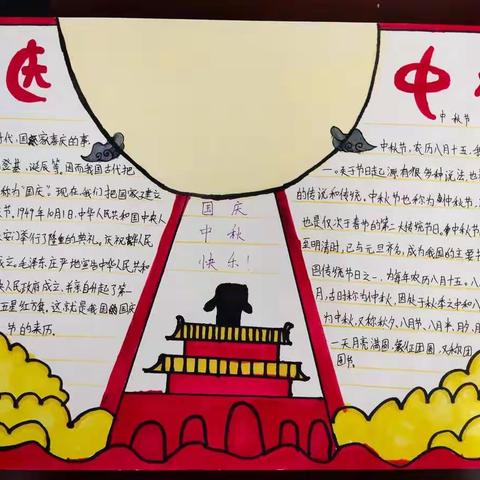 庆
时代,国家喜庆的事
登基、诞辰等,因而我国古代把
称为“国庆”。现在,我们把国家建立
节。1949年10月1日,中华人民共和国中央人
安门举行了隆重的典礼,庆祝
成立。毛泽东庄严地宣告中华人民共和
央人民政府成立,并亲自升起了第一
五星红旗。这就是我国的国庆
节的来历。
国庆
中秋
快乐!
中
中秋节
中秋节,农历八月十五,我
一。关于节日起源有很多种说法,也
的传说和传统。中秋节也称为仲秋节,
也是仅次于春节的第二大传统节日。中秋节
至明清时,已与元旦齐名,成为我国的主要节
国传统节日之一,为每年农历八月十五,八
月,古时称为仲秋,因处于秋季之中和八
为中秋,又称秋夕、八月节、八月半、月夕、月
一天月亮满圆,象征团圆,又称团
圆节。